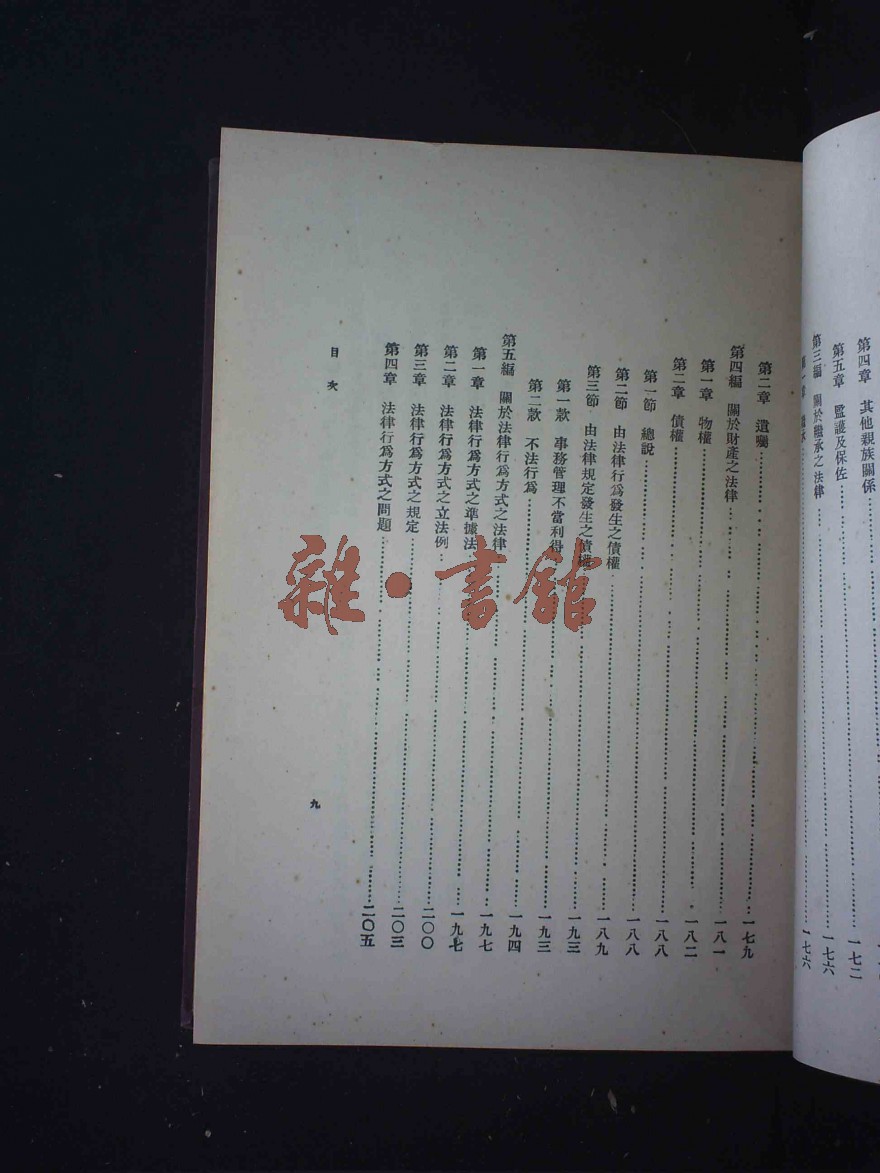 第四章 其他親族關係……一七二
第五章 監護及保佐……一七六
第三編 關於繼承之法律……一七六
第二章 遺囑……一七九
第四編 關於財產之法律……一八一
第一章 物權……一八二
第二章 債權……一八八
第一節 總說……一八八
第二節 由法律行為發生之債權……一八九
第三節 由法律規定發生之債權……一九三
第一款 事務管理不當利得……一九三
第二款 不法行為……一九四
第五編 關於法律行為方式之法律……一九七
第一章 法律行為方式之準據法……一九七
第二章 法律行為方式之立法例……二〇〇
第三章 法律行為方式之規定……二〇三
第四章 法律行為方式之問題……二〇五
目次
九
雜·書館